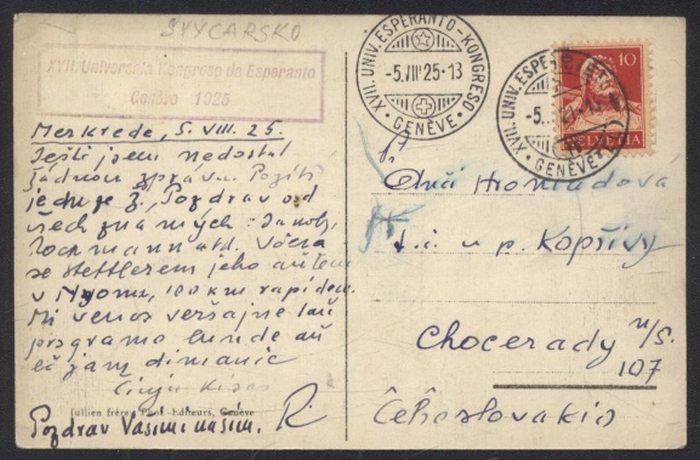 ŠVÝCARSKO
XVII. Universala Kongreso de Esperanto
Genève 1925
XVII. UNIV. ESPERANTO-KONGRESO
-5.VIII 25-13
· GENÈVE ·
XVII. UNIV. ESPERANTO
-5.
· GENÈVE ·
10
HELVETIA
Merkrede, 5. VIII. 25.
Ještě jsem nedostal
žádnou zprávu. Pozítří
jedu ze Ž., Pozdrav od
všech známých: Jakob,
atd. Včera
se Stettlerem jeho autem
v Nyonu, 100 km rapidem.
Mi venos verŝajne laŭ
programo lunde aŭ
eĉ jam dimanĉe
Ĉiuj kisas
Pozdrav Vašim i našim. R.
Jullien frères Phot.-Editeurs, Genève
Hromadová
t. č. u p. Kopřivy
Chocerady n/S.
107
Ĉeĥoslovakio